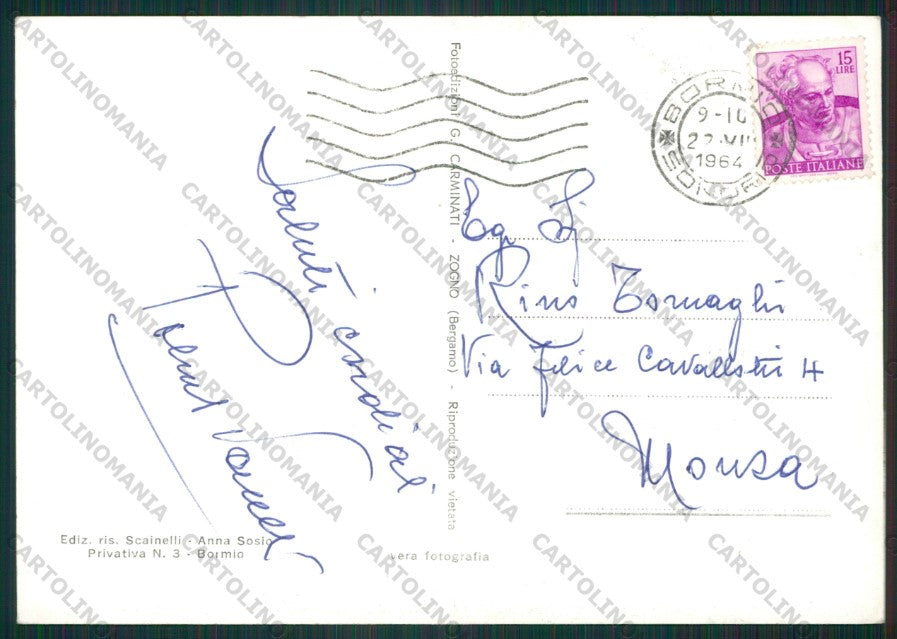 Saluti cordiali
Fotoedizioni G. CARMINATI - ZOGNO (Bergamo) - Riproduzione vietata
BORMIO
9-10
22.VII
1964
SONDRIO
15
LIRE
POSTE ITALIANE
Eg. Sig
Rino Tornaghi
Via Felice Cavallotti 4
Monza
Ediz. ris. Scainelli - Anna Sosio
Privativa N. 3 - Bormio
vera fotografia
CARTOLINOMANIA